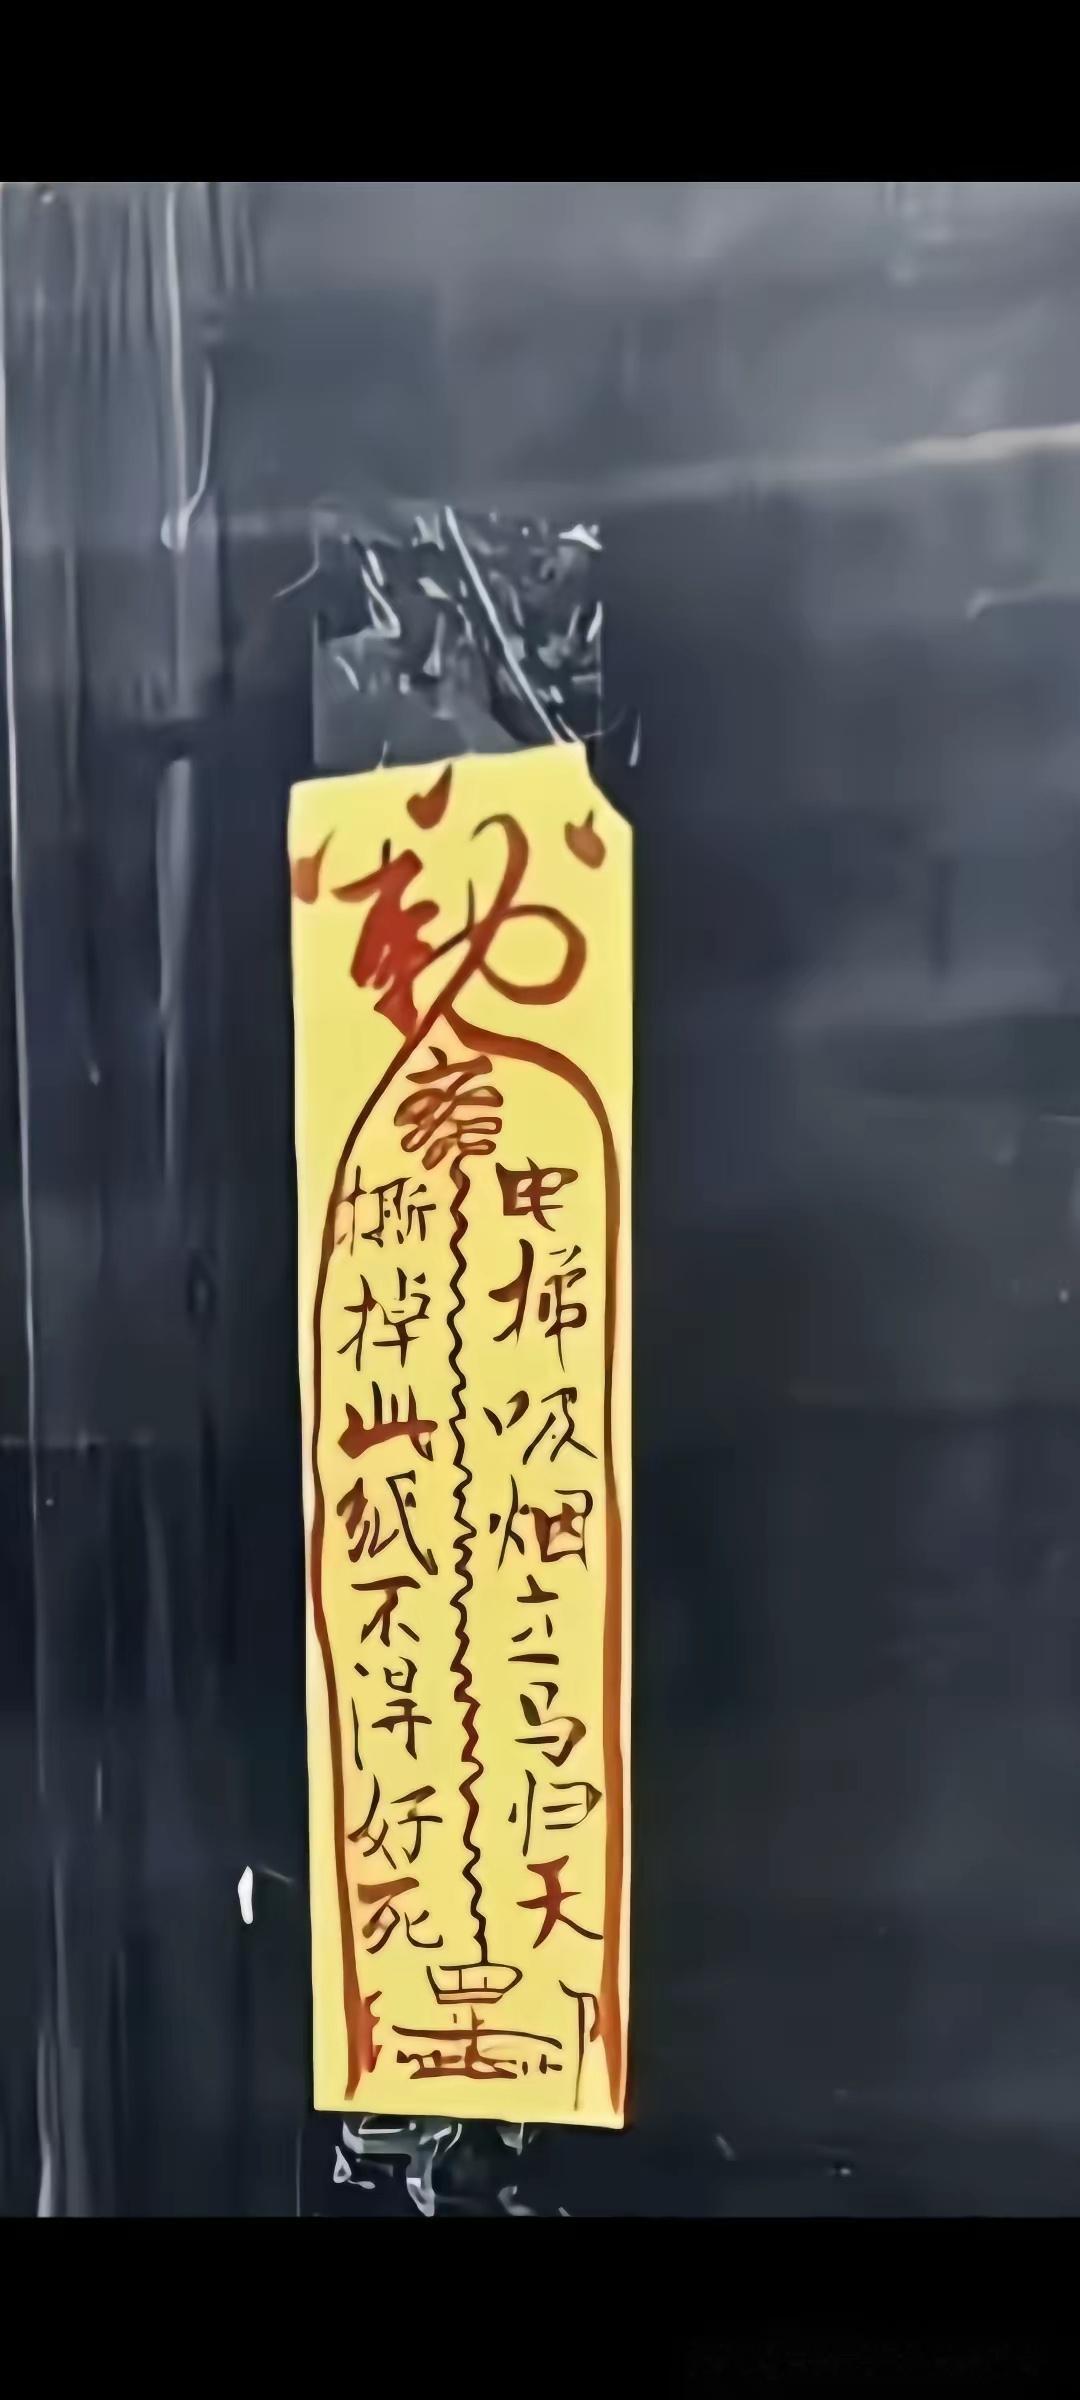 敕
電梯吸烟立马归天
撕掉此纸不得好死